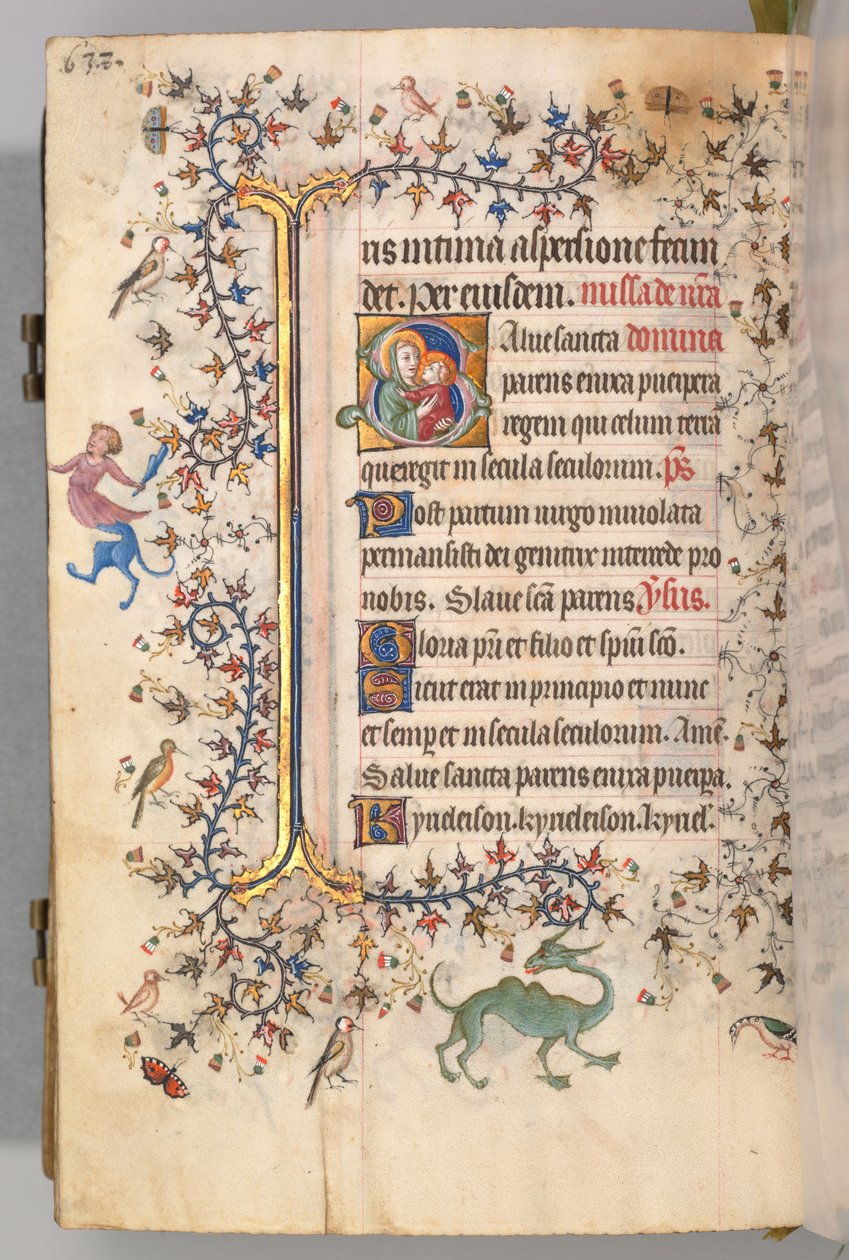 .632.
ris intima aspersione fecun
det. Per eiusdem. missa de nr̄a
Salue sancta domina
parens enixa puerpera
regem qui celum terrā
que regit in secula seculorum. p̄s
Post partum uirgo inuiolata
permansisti dei genitrix intercede pro
nobis. Salue scā parens v̄sus.
Gloria pr̄i et filio et spiū scō.
Sicut erat in principio et nunc
et semp̱ et in secula seculorum. Amē.
Salue sancta parens enixa puerpa.
Kyrieleison. kyrieleison. kyriel'.